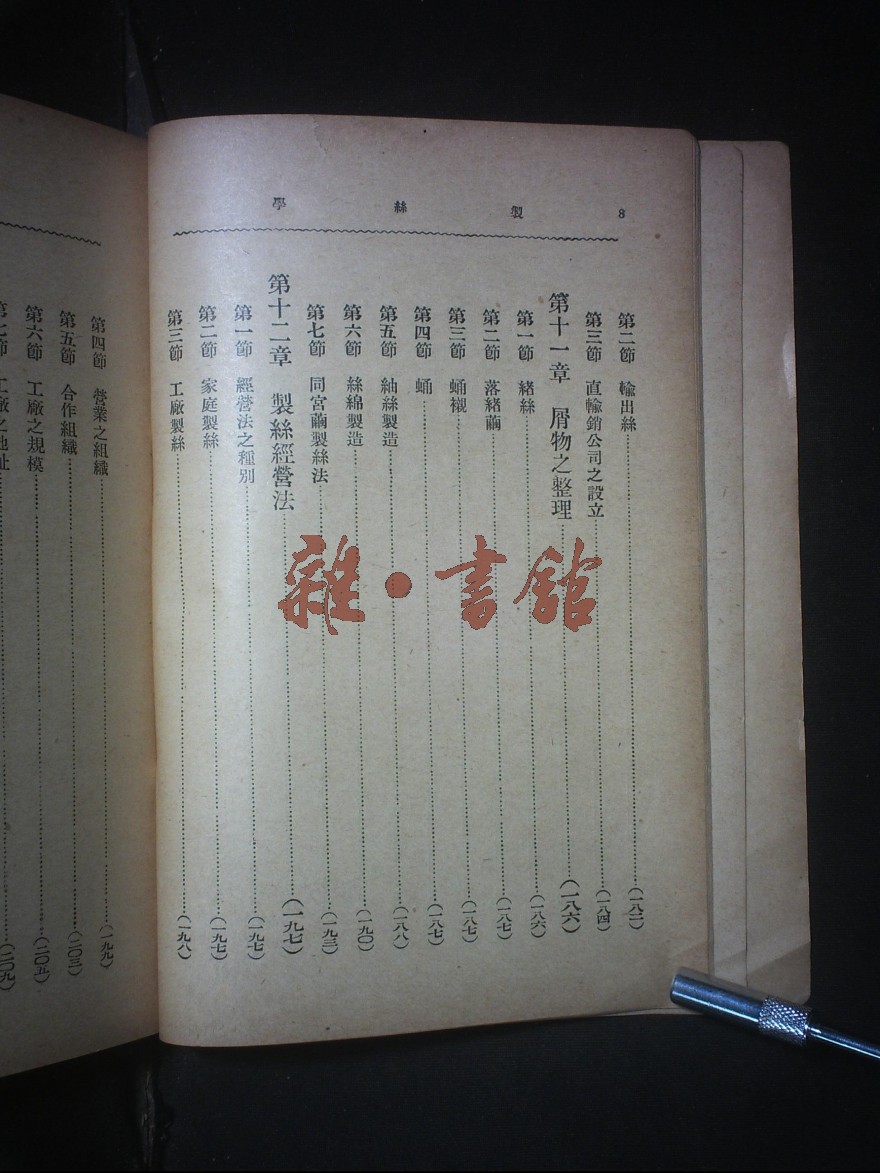 8 製絲學
第二節 輸出絲……(一八二)
第三節 直輸銷公司之設立……(一八四)
第十一章 屑物之整理……(一八六)
第一節 緒絲……(一八六)
第二節 落緒繭……(一八七)
第三節 蛹襯……(一八七)
第四節 蛹……(一八七)
第五節 紬絲製造……(一八八)
第六節 絲綿製造……(一九〇)
第七節 同宮繭製絲法……(一九三)
第十二章 製絲經營法……(一九七)
第一節 經營法之種別……(一九七)
第二節 家庭製絲……(一九七)
第三節 工廠製絲……(一九八)
第四節 營業之組織……(一九九)
第五節 合作組織……(二〇三)
第六節 工廠之規模……(二〇五)
第七節 工廠之地址……(二〇九)
雜·書館